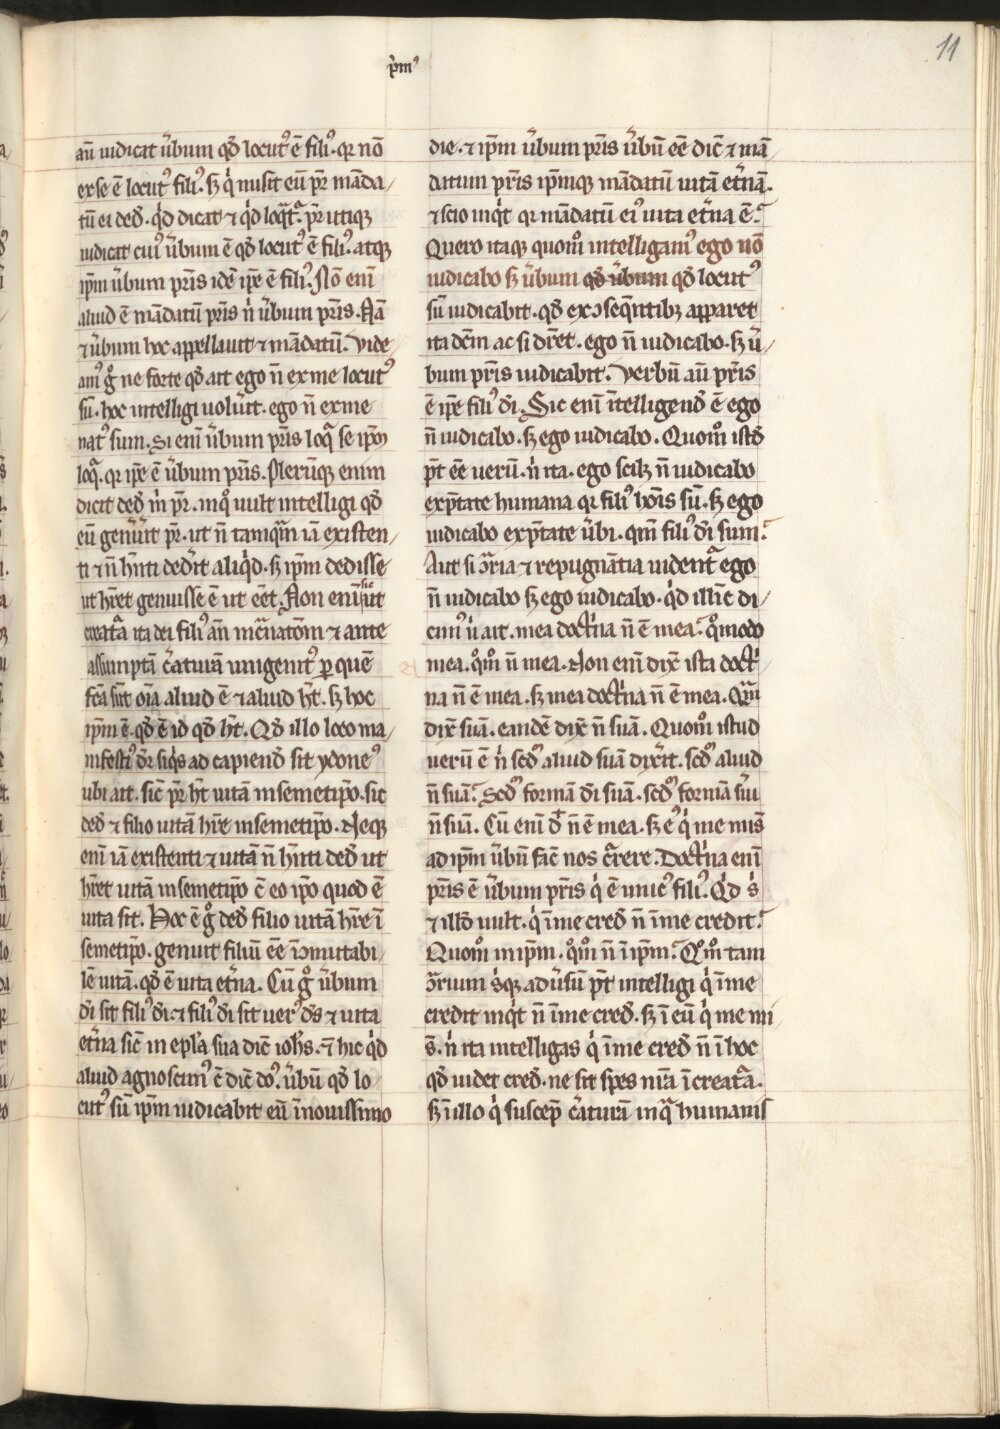 p̾mꝰ
11
aū iudicat ůbum qd̕ locutꝰ ē filiꝰ. qr nō
ex se ē locutꝰ filiꝰ. sꝫ q̇ misit eū pr̄ māda/
tū ei ded̕. q̇d dicat ⁊ q̇d loqᷓt᷑. pr̄ utiqꝫ
iudicat cuiꝰ ůbum ē qd̕ locutꝰ ē filiꝰ. atqꝫ
ip̄m ůbum pr̄is idē ip̄e ē filiꝰ. Nō enī
aliud ē mādatū pr̄is ṅ ůbum pr̄is. Nā
⁊ ůbum hoc appellauit ⁊ mādatū. Vide/
amꝰ gͦ ne forte qd̕ ait ego n̄ ex me locutꝰ
sū. hoc intelligi uolůit. ego n̄ ex me
natꝰ sum. Si enī ůbum pr̄is loqᷓ se ip̄m
loqᷓ. qr ip̄e ē ůbum pr̄is. Plerūqꝫ enim
dicit ded̕ m̊ pr̄. in qͦ uult intelligi qd̕
eū genůit pr̄. ut n̄ tamqᷓm iā existen/
ti ⁊ n̄ hn̄ti ded̾it aliq̇d. sꝫ ip̄m dedisse
ut hr̄et genuisse ē ut eēt. Non enī sic ut
creatᷓa ita dei filiꝰ an̄ incᷓnatōm ⁊ ante
assumptā c̾aturā unigenitꝰ ꝑ quē
fcā sūt oīa aliud ē ⁊ aliud ht̄. sꝫ hoc
ip̄m ē. qd̕ ē id qd̕ ht̄. Qd̕ illo loco ma/
nifestiꝰ dr̄ siq̇s ad capiend̕ sit ydoneꝰ
ubi ait. sic̄ pr̄ ht̄ uitā in semetip̄o. sic
ded̕ ⁊ filio uitā hr̄e in semetip̄o. Neqꝫ
enī iā existenti ⁊ uitā n̄ hn̄ti ded̕ ut
hr̄et uitā in semetip̄o c̄ eo ip̄o quod ē
uita sit. Hoc ē gͦ ded̕ filio uitā hr̄e ī
semetip̄o. genuit filiū eē īɔmutabi/
lē uitā. qd̕ ē uita et̾na. Cū gͦ ůbum
dī sit filiꝰ dī. ⁊ filiꝰ dī sit uerꝰ ds̄ ⁊ uita
et̾na sic̄ in epl̄a sua dic̄ ioh̄s. ⁊̄ hic q̇d
aliud agnoscimꝰ c̄ dic̄ do᷒. ůbū qd̕ lo/
cutꝰ sū ip̄m iudicabit eū ī nouissimo
die. ⁊ ip̄m ůbum pr̄is ůbū eē dic̄ ⁊ mā/
datum pr̄is ip̄mqꝫ mādatū uitā et̾nā.
⁊ scio inq̇t qr mādatū eiꝰ uita et̾na ē.
Quero itaqꝫ quomͦ intelligamꝰ ego nō
iudicabo sꝫ ůbum qd̕ ůbum qd̕ locutꝰ
sū iudicabit. qd̕ ex ɔseq̄ntibꝫ apparet
ita dc̄m ac si dr̄et. ego n̄ iudicabo. sꝫ ů/
bum pr̄is iudicabit. Verbū aū pr̄is
ē ip̄e filiꝰ dī. Sic enī ītelligend̕ ē ego
n̄ iudicabo. sꝫ ego iudicabo. Quomͦ istd̕
pt̄ eē uerū. ṅ ita. ego scilꝫ n̄ iudicabo
ex ptāte humana qr filiꝰ hoīs sū. sꝫ ego
iudicabo ex ptāte ůbi. qm̄ filiꝰ dī sum.
Aut si ɔr̄ia ⁊ repugnātia uident᷑ ego
n̄ iudicabo sꝫ ego iudicabo. q̇d illic̄ di/
cimꝰ u̇ ait. mea doct̾na n̄ ē mea. qͦmodo
mea. qͦmͦ n̄ mea. Non enī dix̄ ista doct̾/
na n̄ ē mea. sꝫ mea doct̾na n̄ ē mea. Qᷓm
dix̄ suā. eandē dix̄ n̄ suā. Quomͦ istud
uerū ē ṅ scd̕m aliud suā dix̾it. scd̕m aliud
n̄ suā. Scd̕m formā dī suā. scd̕m formā s̾ui
n̄ suā. Cū enī d̄ n̄ ē mea. sꝫ eꝰ q̇ me mis̄
ad ip̄m ůbū fac̄ nos c̾rere. Doct̾na enī
pr̄is ē ůbum pr̄is q̇ ē unicꝰ filiꝰ. Q̇d s̾
⁊ illd̕ uult. q̇ ī me cred̕ n̄ ī me credit.
Quomͦ in ip̄m. qͦmͦ n̄ ī ip̄m. Qͦmͦ tam
ɔr̄ium s̾qꝫ adůsū pt̄ intelligi q̇ ī me
credit inq̇t n̄ ī me cred̕. sꝫ ī eū q̇ me mi/
s̄. ṅ ita intelligas q̇ ī me cred̕ n̄ ī hoc
qd̕ uidet cred̕. ne sit spes nr̄a ī creatᷓa.
sꝫ ī illo q̇ suscep̄ c̾aturā in qᷓ humanis